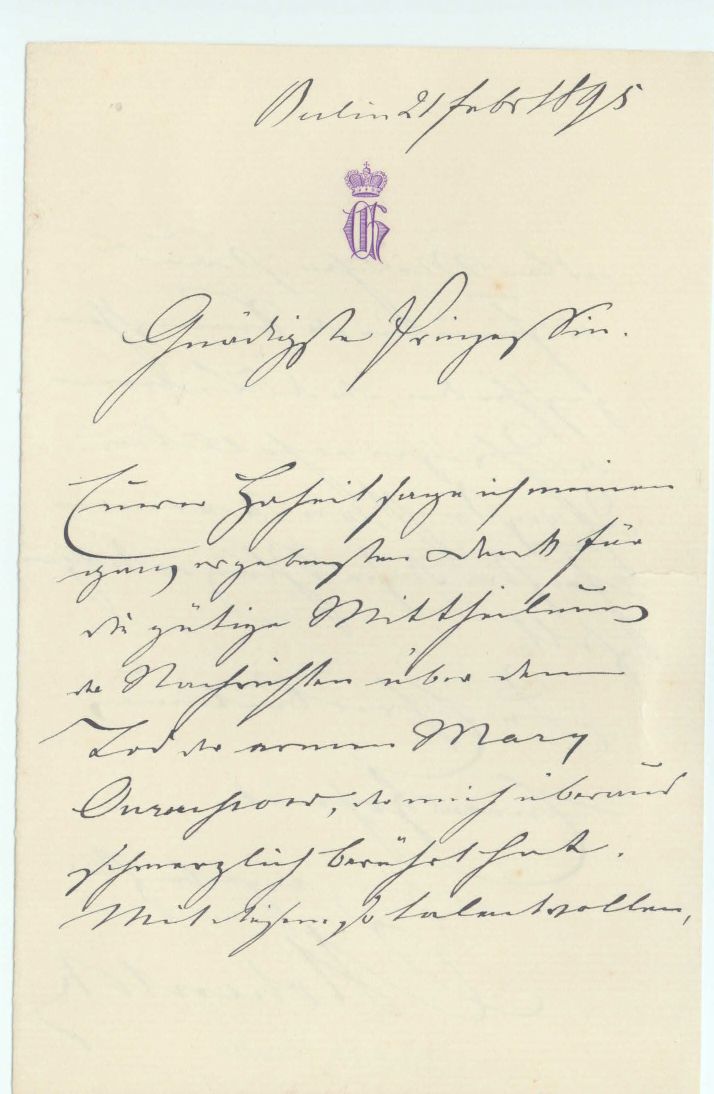 Berlin 21 Febr 1895
Gnädigste Prinzessin.
Eurer Hoheit sage ich meinen
ganz ergebensten Dank für
die gütige Mittheilung
der Nachrichten über den
Tod der armen Mary
der mich überaus
schmerzlich berührt hat.
Mit dieser so talentvollen,